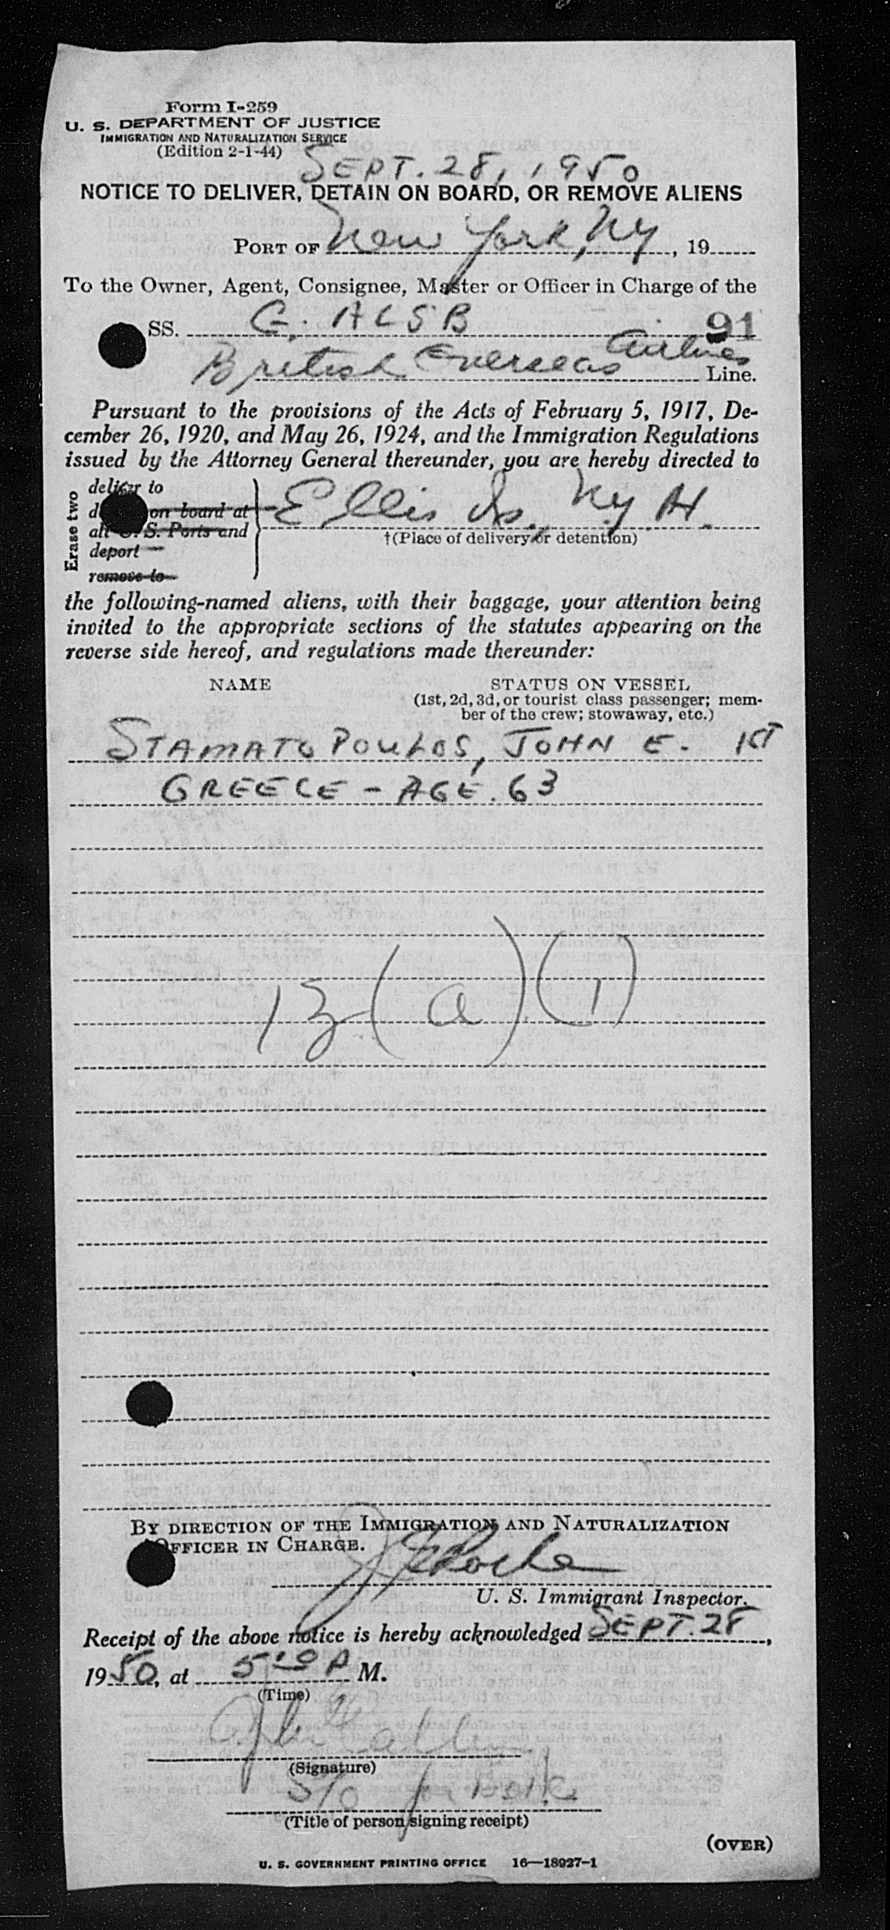 Form I-259
U. S. DEPARTMENT OF JUSTICE
IMMIGRATION AND NATURALIZATION SERVICE
(Edition 2-1-44)
SEPT. 28, 1950
NOTICE TO DELIVER, DETAIN ON BOARD, OR REMOVE ALIENS
PORT OF New York, NY, 19
To the Owner, Agent, Consignee, Master or Officer in Charge of the
SS. G. ALSB 91
British Overseas Airlines Line.
Pursuant to the provisions of the Acts of February 5, 1917, De-
cember 26, 1920, and May 26, 1924, and the Immigration Regulations
issued by the Attorney General thereunder, you are hereby directed to
Erase two
deliver to
on board at
all U. S. Ports and
deport
remove to
Ellis Is., N.Y. H.
†(Place of delivery or detention)
the following-named aliens, with their baggage, your attention being
invited to the appropriate sections of the statutes appearing on the
reverse side hereof, and regulations made thereunder:
NAME STATUS ON VESSEL
(1st, 2d, 3d, or tourist class passenger; mem-
ber of the crew; stowaway, etc.)
STAMATOPOULOS, JOHN E. 1ST
GREECE - AGE. 63
13 (a) (1)
BY DIRECTION OF THE IMMIGRATION AND NATURALIZATION
OFFICER IN CHARGE.
U. S. Immigrant Inspector.
Receipt of the above notice is hereby acknowledged SEPT. 28,
1950, at 510 P M.
(Time)
(Signature)
S/O for
(Title of person signing receipt)
(OVER)
U. S. GOVERNMENT PRINTING OFFICE 16—18927-1